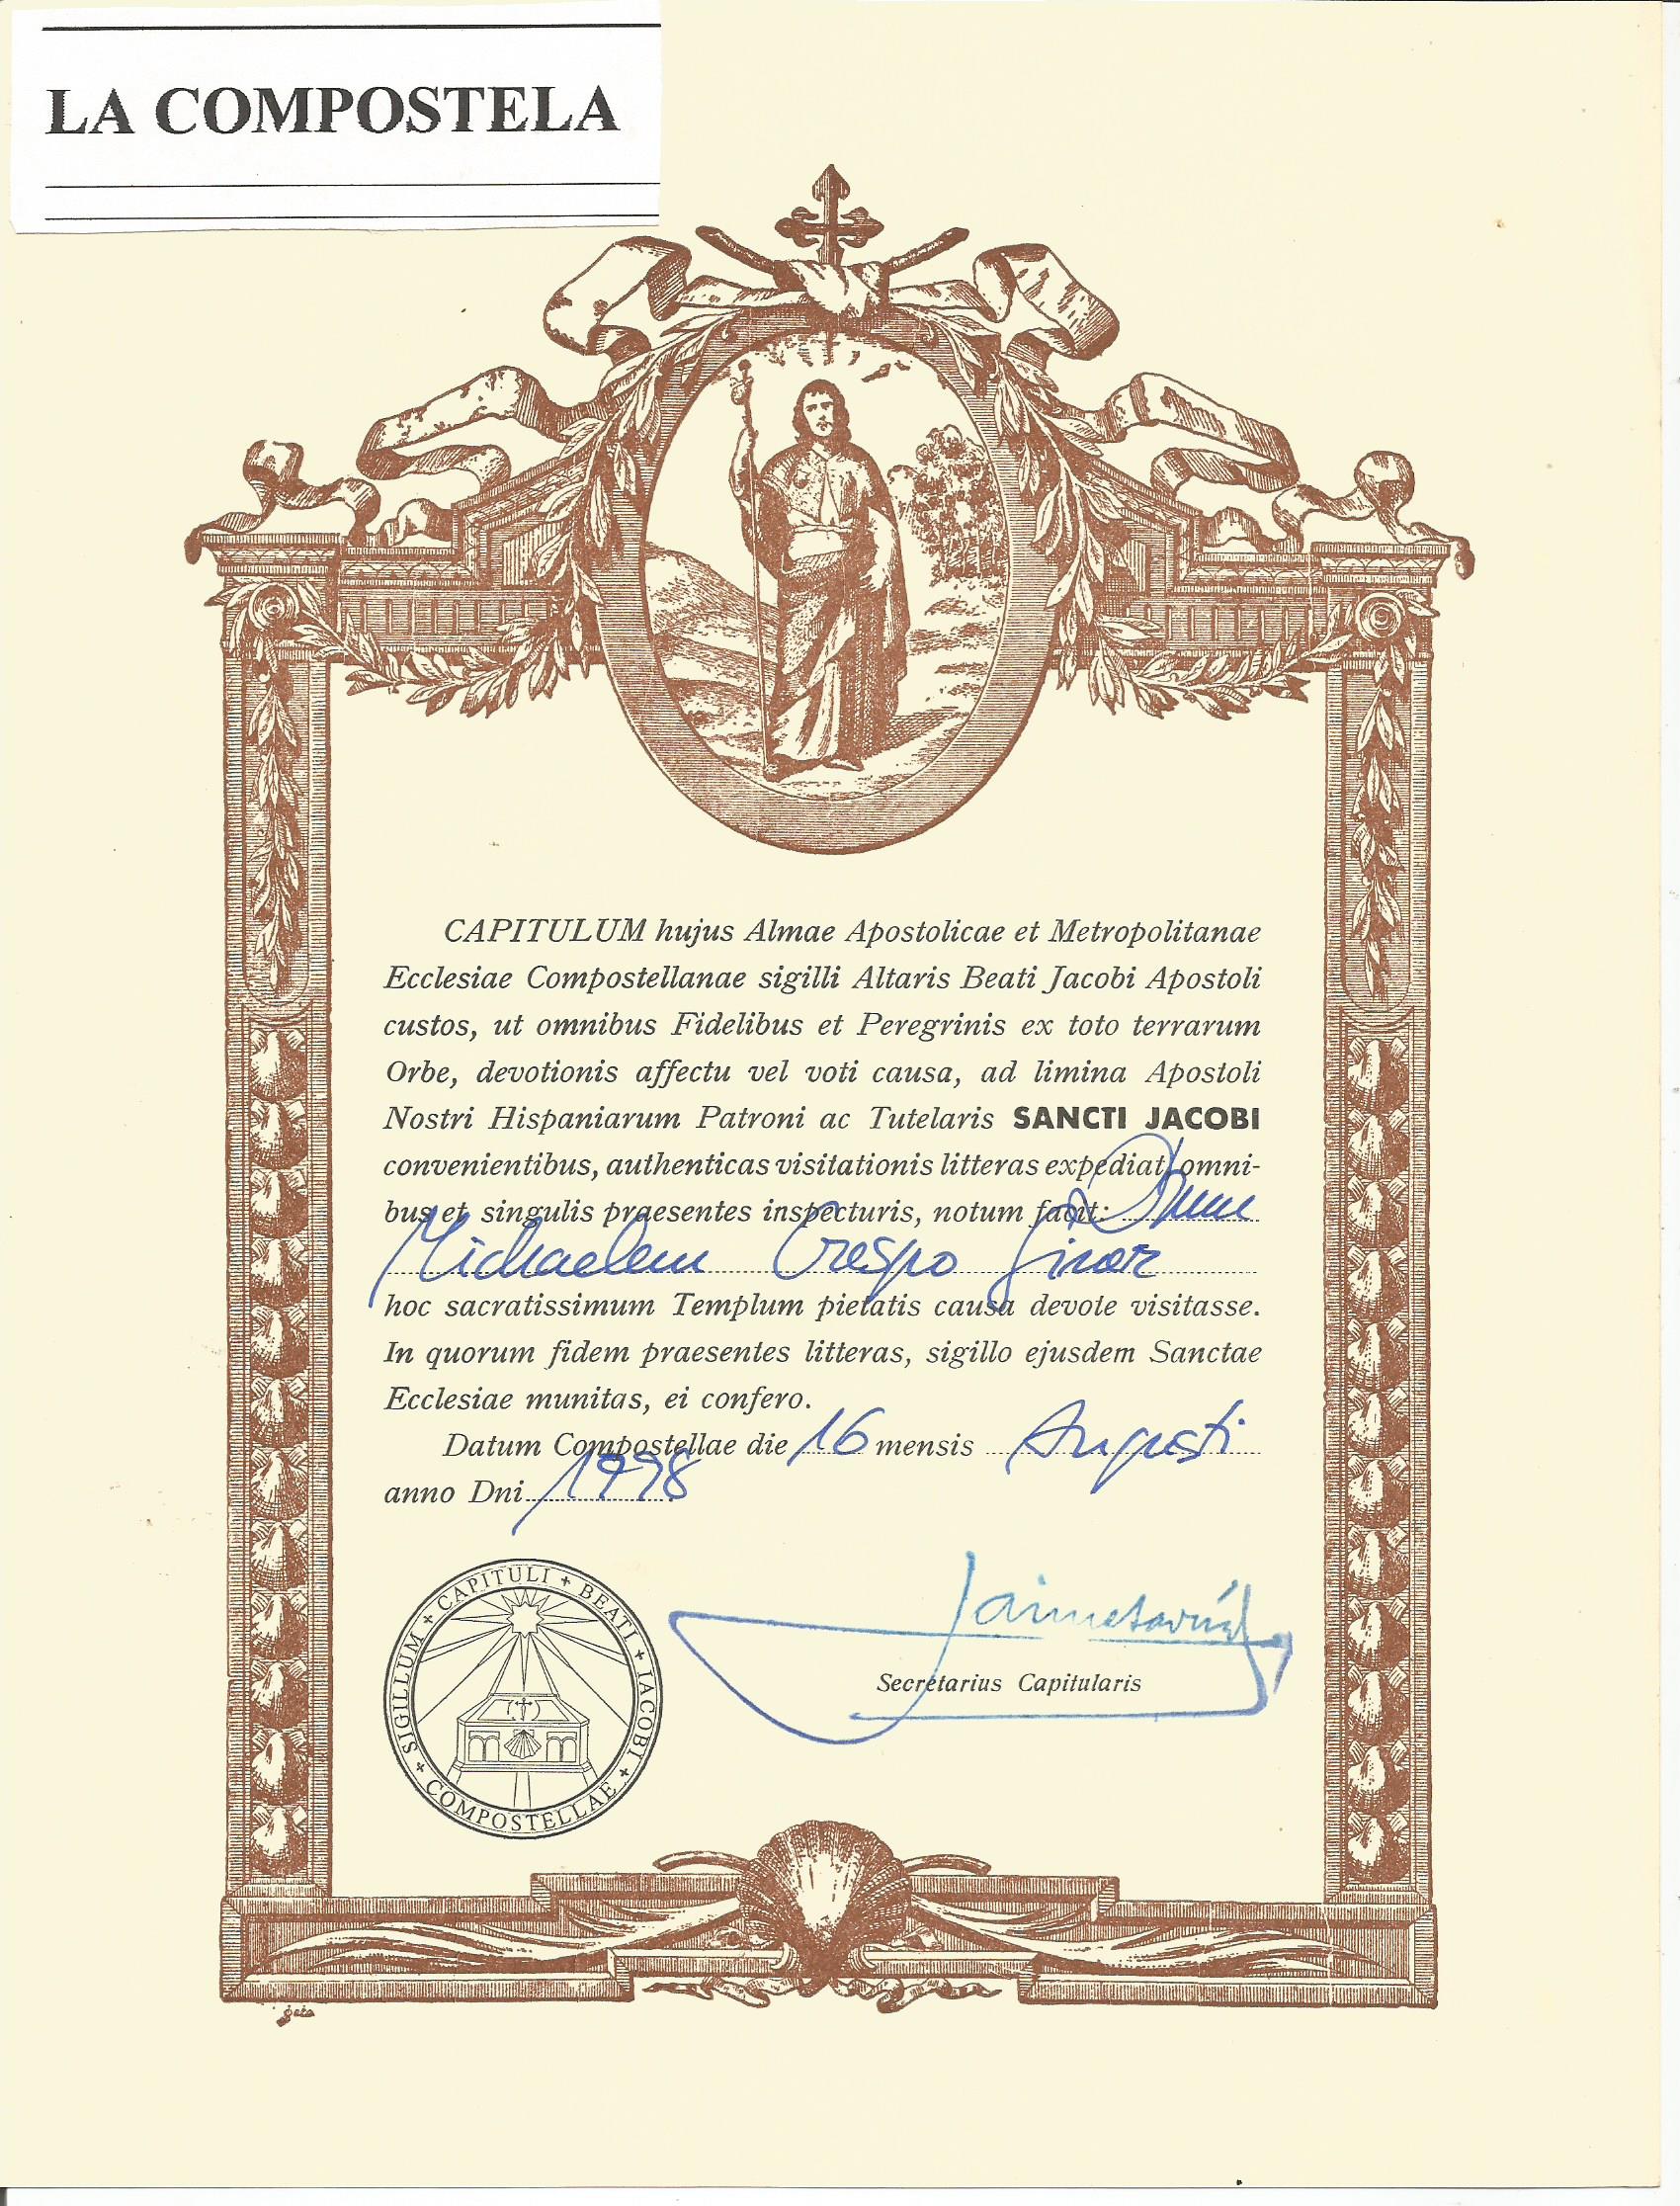 LA COMPOSTELA
CAPITULUM hujus Almae Apostolicae et Metropolitanae
Ecclesiae Compostellanae sigilli Altaris Beati Jacobi Apostoli
custos, ut omnibus Fidelibus et Peregrinis ex toto terrarum
Orbe, devotionis affectu vel voti causa, ad limina Apostoli
Nostri Hispaniarum Patroni ac Tutelaris SANCTI JACOBI
convenientibus, authenticas visitationis litteras expediat, omni-
bus et singulis praesentes inspecturis, notum facit: Dnum
Michaelem Crespo
hoc sacratissimum Templum pietatis causa devote visitasse.
In quorum fidem praesentes litteras, sigillo ejusdem Sanctae
Ecclesiae munitas, ei confero.
Datum Compostellae die 16 mensis Augusti
anno Dni 1998
SIGILLUM + CAPITULI + BEATI + IACOBI + COMPOSTELLAE +
Secretarius Capitularis